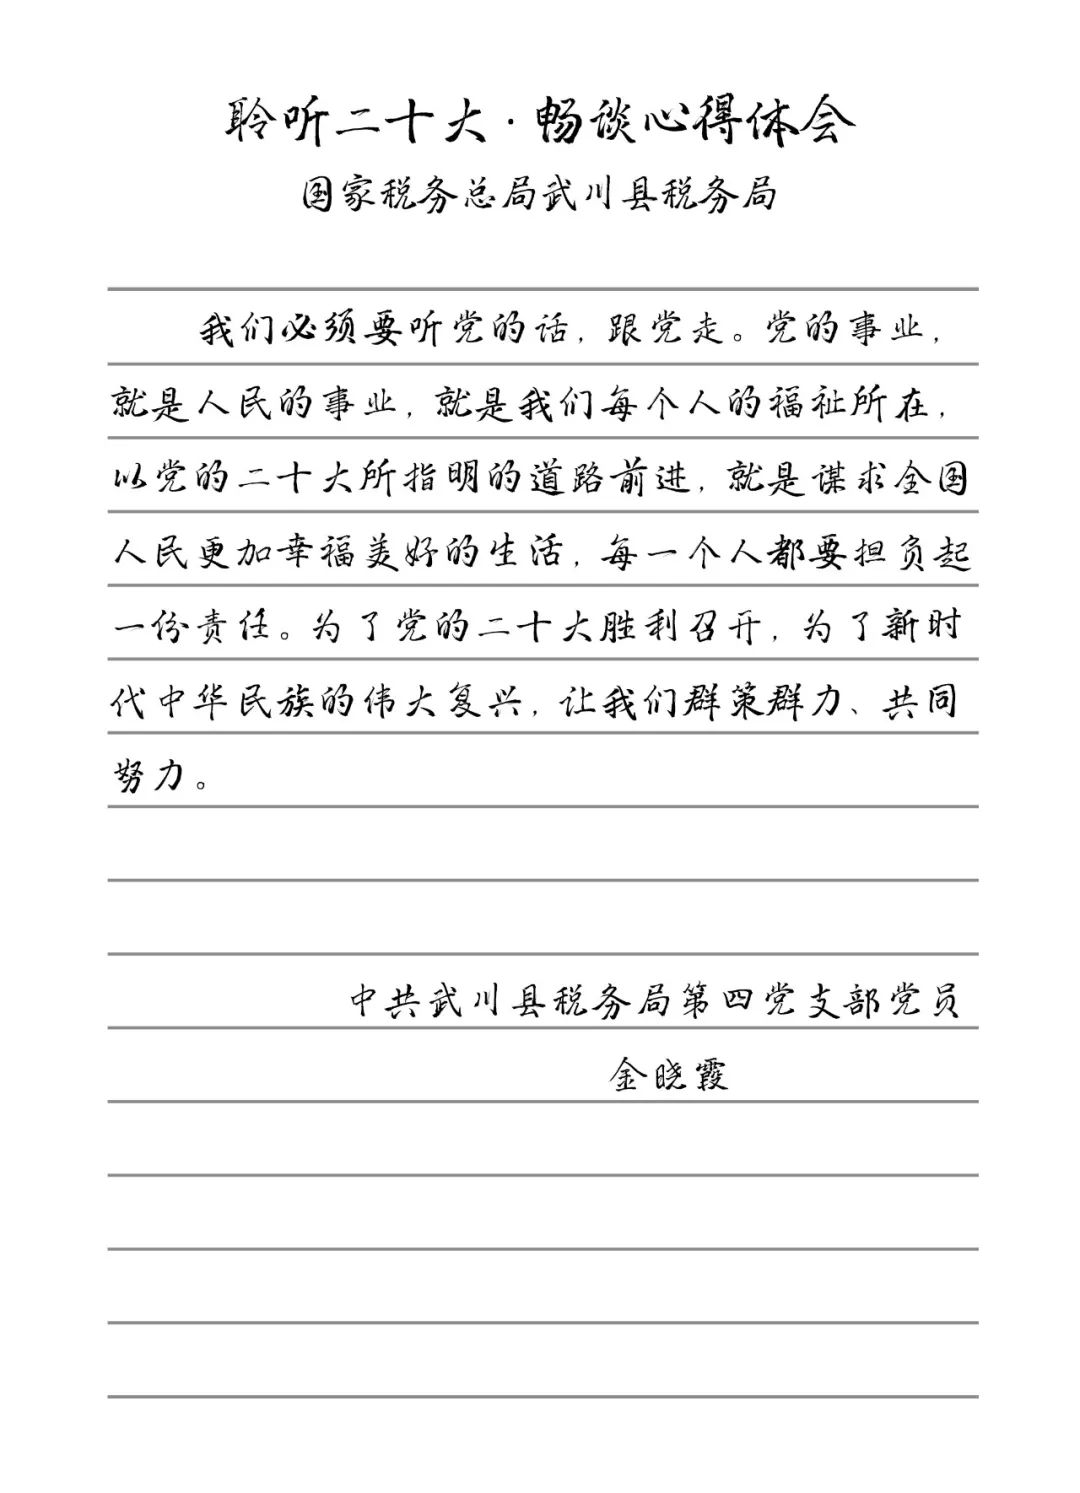 聆听二十大·畅谈心得体会
国家税务总局武川县税务局
我们必须要听党的话，跟党走。党的事业，
就是人民的事业，就是我们每个人的福祉所在，
以党的二十大所指明的道路前进，就是谋求全国
人民更加幸福美好的生活，每一个人都要担负起
一份责任。为了党的二十大胜利召开，为了新时
代中华民族的伟大复兴，让我们群策群力、共同
努力。
中共武川县税务局第四党支部党员
金晓霞